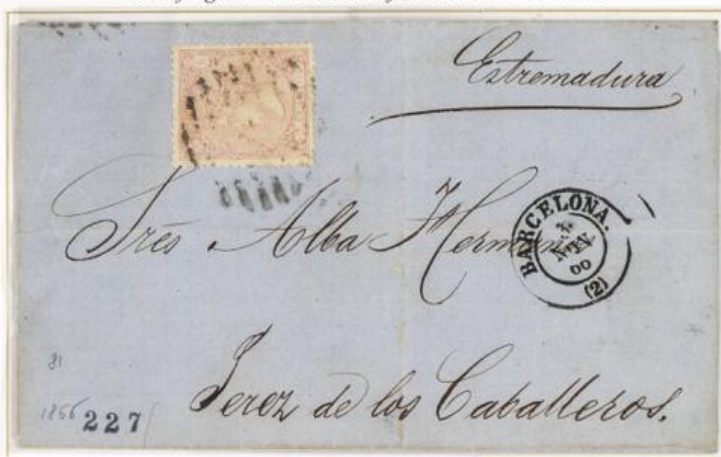 Estremadura
Sres Alba Herman
BARCELONA.
NOV
66
(2)
Jerez de los Caballeros.
81
1866 227